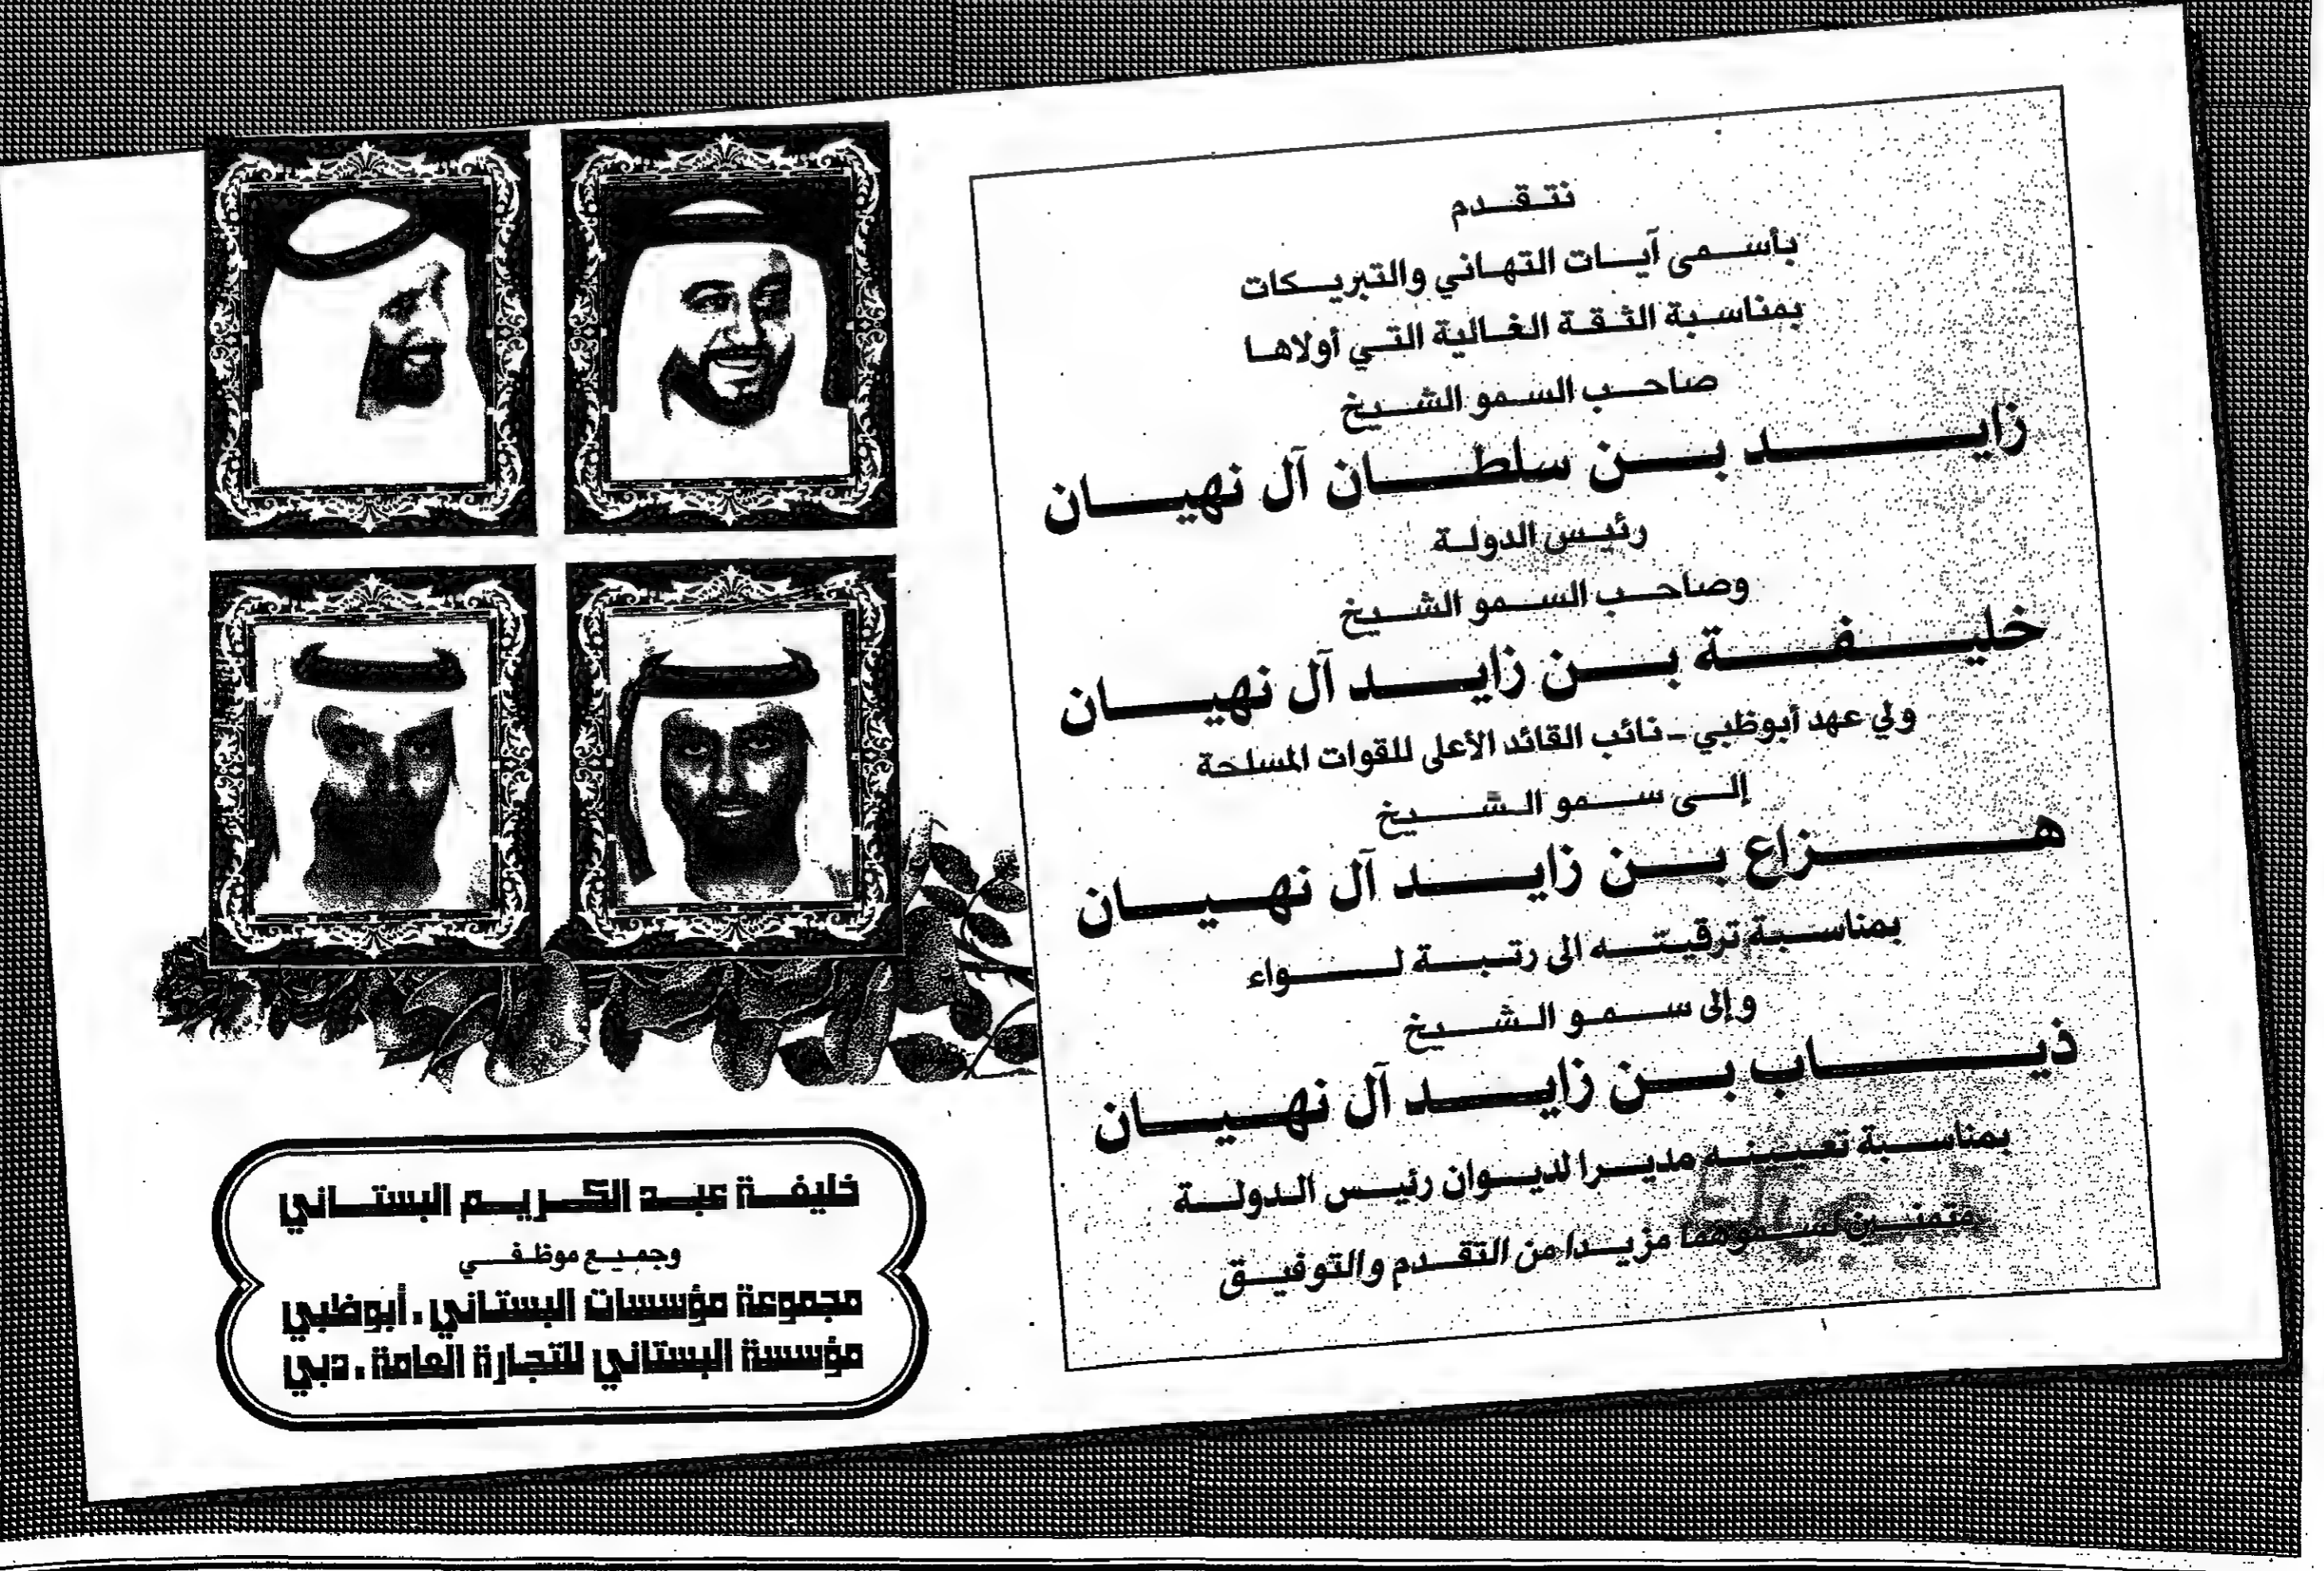 نتقدم
بأسمى آيات التهاني والتبريكات
بمناسبة الثقة الغالية التي أولاها
صاحب السمو الشيخ
زايد بن سلطان آل نهيان
رئيس الدولة
وصاحب السمو الشيخ
خليفة بن زايد آل نهيان
ولي عهد أبوظبي - نائب القائد الأعلى للقوات المسلحة
إلى سمو الشيخ
هزاع بن زايد آل نهيان
بمناسبة ترقيته الى رتبة لواء
وإلى سمو الشيخ
ذياب بن زايد آل نهيان
بمناسبة تعيينه مديرا لديوان رئيس الدولة
متمنين لسموهما مزيدا من التقدم والتوفيق
خليفة عبد الكريم البستاني
وجميع موظفي
مجموعة مؤسسات البستاني . أبوظبي
مؤسسة البستاني للتجارة العامة . دبي